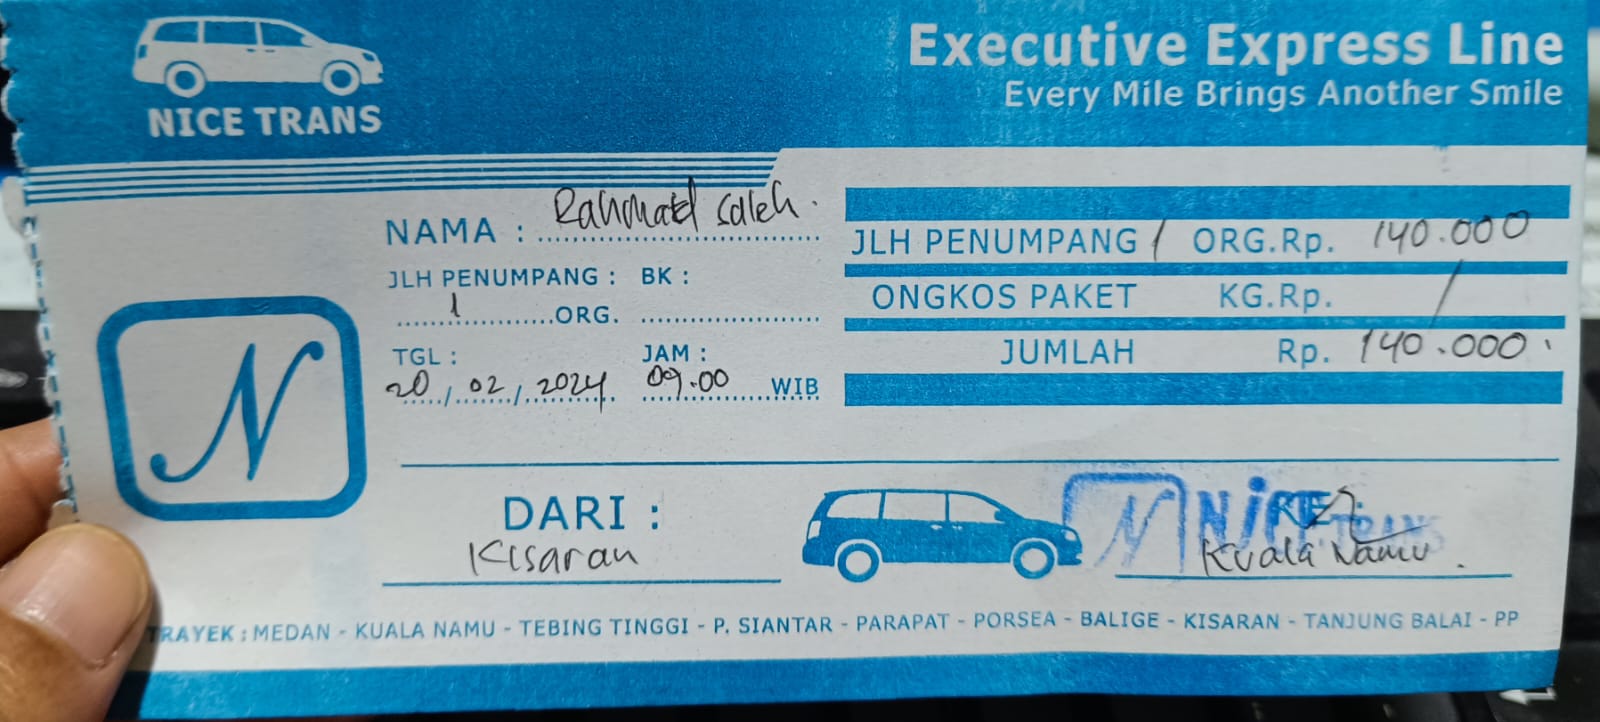 NICE TRANS
Executive Express Line
Every Mile Brings Another Smile
NAMA : Rahmad Saleh.
JLH PENUMPANG : BK :
1 ORG.
TGL : JAM :
20 / 02 / 2024 09.00 WIB
JLH PENUMPANG 1 ORG.Rp. 140.000
ONGKOS PAKET KG.Rp. /
JUMLAH Rp. 140.000.
N
DARI :
Kisaran
N NICE TRANS
KE :
Kuala Namu.
TRAYEK : MEDAN - KUALA NAMU - TEBING TINGGI - P. SIANTAR - PARAPAT - PORSEA - BALIGE - KISARAN - TANJUNG BALAI - PP